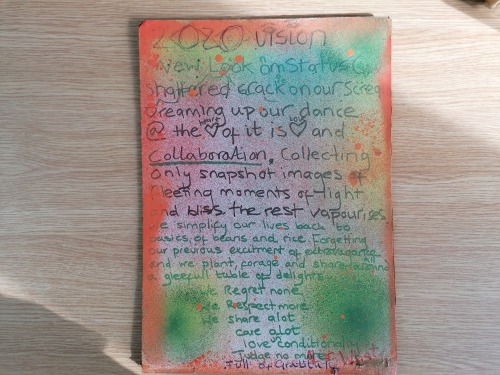 2020 vision
new Look on Status Q
shattered crack on our screen
dreaming up our dance
@ the heart ♡ of it is love ♡ and
Collaboration. Collecting
only snapshot images of
fleeting moments of light
and bliss the rest vapourises
we simplify our lives back to
basics of beans and rice. Forgetting
our previous excitment of extravagance
and we plant, forage and share
a gleefull table of delights
We Regret none
We Respect more
We share alot
care alot
love conditionally
Judge no matter
Full of Gratitude